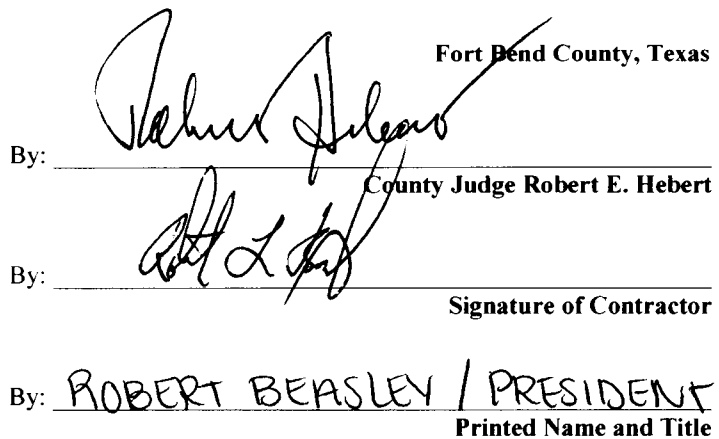 Fort Bend County, Texas
By:
County Judge Robert E. Hebert
By:
Signature of Contractor
By: ROBERT BEASLEY / PRESIDENT
Printed Name and Title